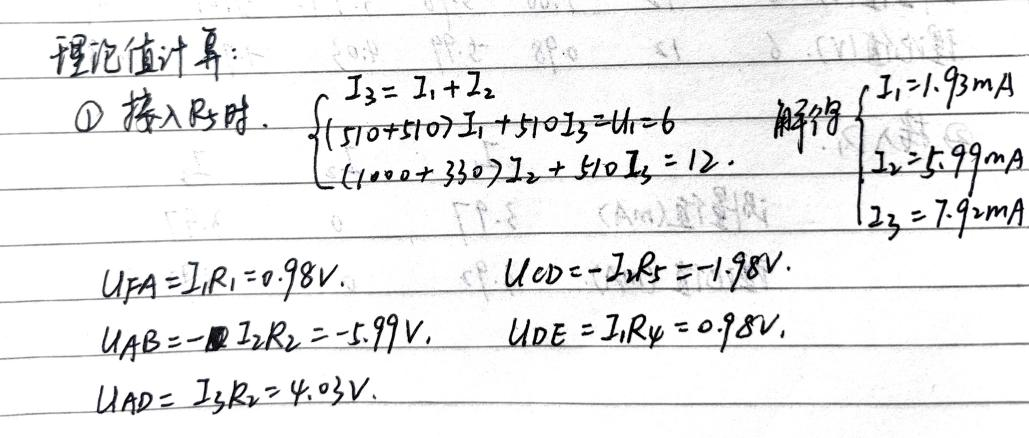 理论值计算:
① 接入R5时. { I3 = I1 + I2
(510+510)I1 + 510I3 = U1 = 6
(1000+330)I2 + 510I3 = 12.
解得 { I1 = 1.93mA
I2 = 5.99mA
I3 = 7.92mA
UFA = I1R1 = 0.98V. UCD = -I2R5 = -1.98V.
UAB = - I2R2 = -5.99V. UDE = I1R4 = 0.98V.
UAD = I3R2 = 4.03V.